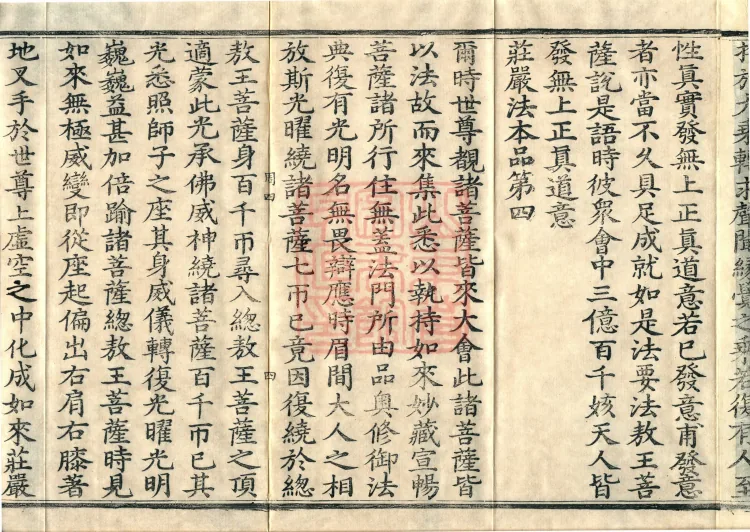 大乘轉求聲聞緣覺之乘若復有人至
性眞實發無上正眞道意若已發意甫發意
者亦當不久具足成就如是法要法教王菩
薩說是語時彼眾會中三億百千姟天人皆
發無上正眞道意
莊嚴法本品第四
爾時世尊觀諸菩薩皆來大會此諸菩薩皆
以法故而來集此悉以執持如來妙藏宣暢
菩薩諸所行住無蓋法門所由品奧修御法
典復有光明名無畏辯應時眉間大人之相
放斯光曜繞諸菩薩七帀已竟因復繞於總
周四 四
敖王菩薩身百千帀尋入總敖王菩薩之頂
適蒙此光承佛威神繞諸菩薩百千帀已其
光悉照師子之座其身威儀轉復光曜光明
巍巍益甚加倍踰諸菩薩總敖王菩薩時見
如來無極威變即從座起偏出右肩右膝著
地叉手於世尊上虛空之中化成如來莊嚴